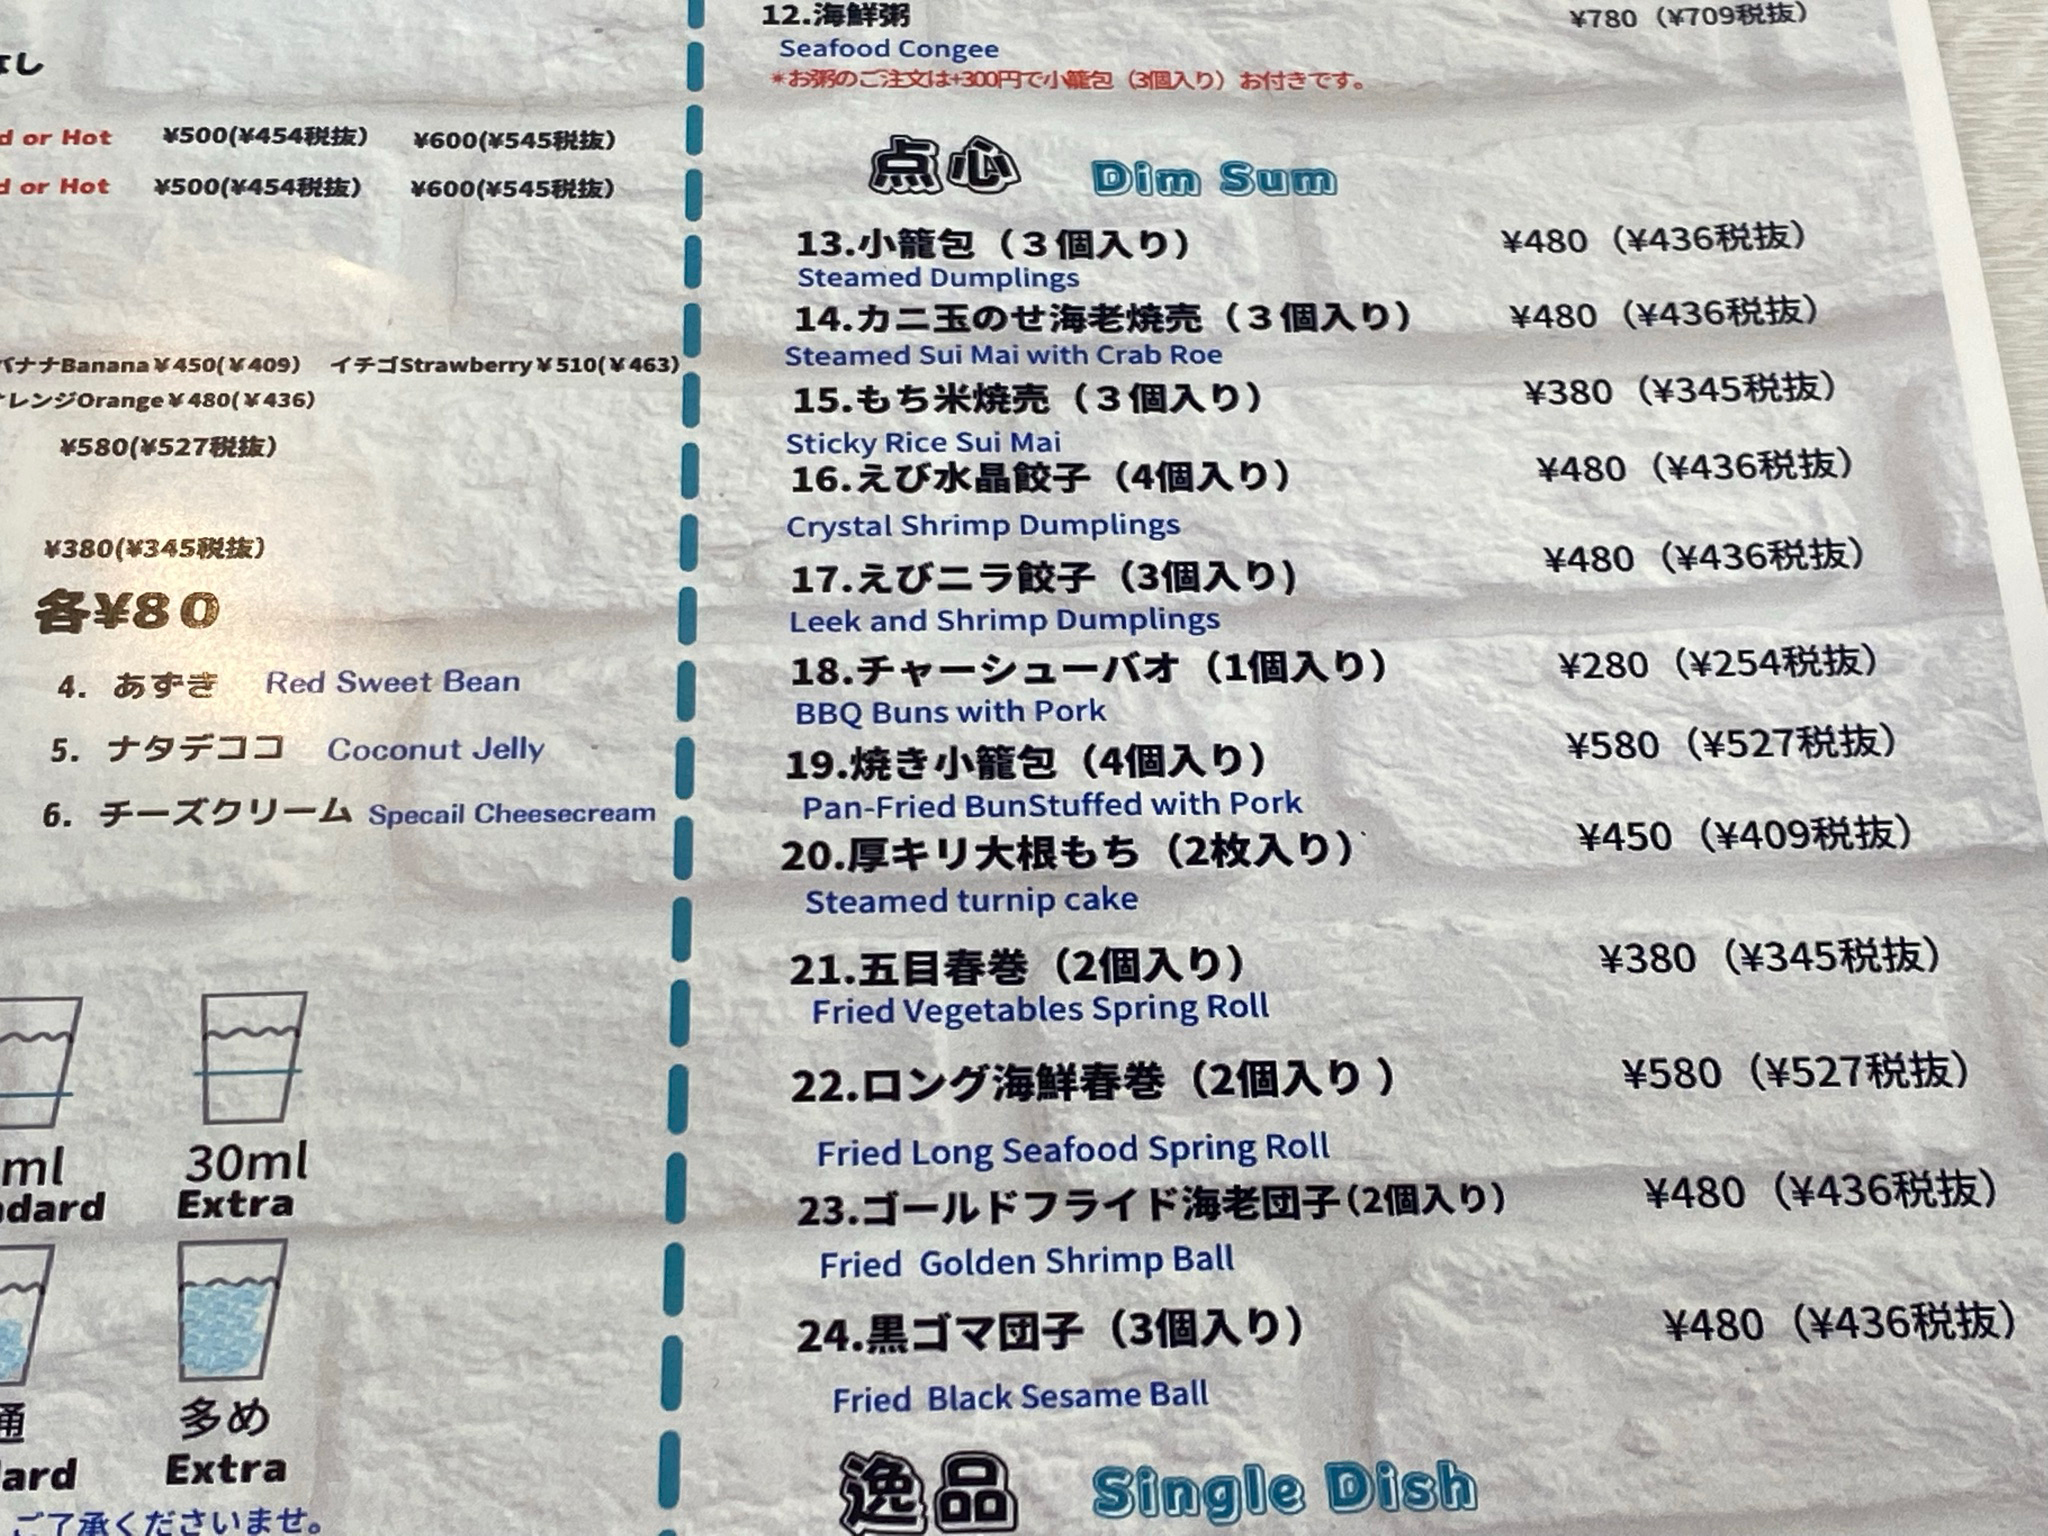 なし
d or Hot ¥500(¥454税抜) ¥600(¥545税抜)
d or Hot ¥500(¥454税抜) ¥600(¥545税抜)
バナナBanana¥450(¥409) イチゴStrawberry¥510(¥463)
オレンジOrange¥480(¥436)
¥580(¥527税抜)
¥380(¥345税抜)
各¥80
4. あずき Red Sweet Bean
5. ナタデココ Coconut Jelly
6. チーズクリーム Specail Cheesecream
ml 30ml
ndard Extra
通 多め
dard Extra
ご了承くださいませ。
12.海鮮粥 ¥780（¥709税抜）
Seafood Congee
*お粥のご注文は+300円で小籠包（3個入り）お付きです。
点心 Dim Sum
13.小籠包（３個入り） ¥480（¥436税抜）
Steamed Dumplings
14.カニ玉のせ海老焼売（３個入り） ¥480（¥436税抜）
Steamed Sui Mai with Crab Roe
15.もち米焼売（３個入り） ¥380（¥345税抜）
Sticky Rice Sui Mai
16.えび水晶餃子（4個入り） ¥480（¥436税抜）
Crystal Shrimp Dumplings
17.えびニラ餃子（3個入り) ¥480（¥436税抜）
Leek and Shrimp Dumplings
18.チャーシューバオ（1個入り） ¥280（¥254税抜）
BBQ Buns with Pork
19.焼き小籠包（4個入り） ¥580（¥527税抜）
Pan-Fried BunStuffed with Pork
20.厚キリ大根もち（2枚入り）` ¥450（¥409税抜）
Steamed turnip cake
21.五目春巻（2個入り） ¥380（¥345税抜）
Fried Vegetables Spring Roll
22.ロング海鮮春巻（2個入り ） ¥580（¥527税抜）
Fried Long Seafood Spring Roll
23.ゴールドフライド海老団子(2個入り） ¥480（¥436税抜）
Fried Golden Shrimp Ball
24.黒ゴマ団子（3個入り） ¥480（¥436税抜）
Fried Black Sesame Ball
逸品 Single Dish